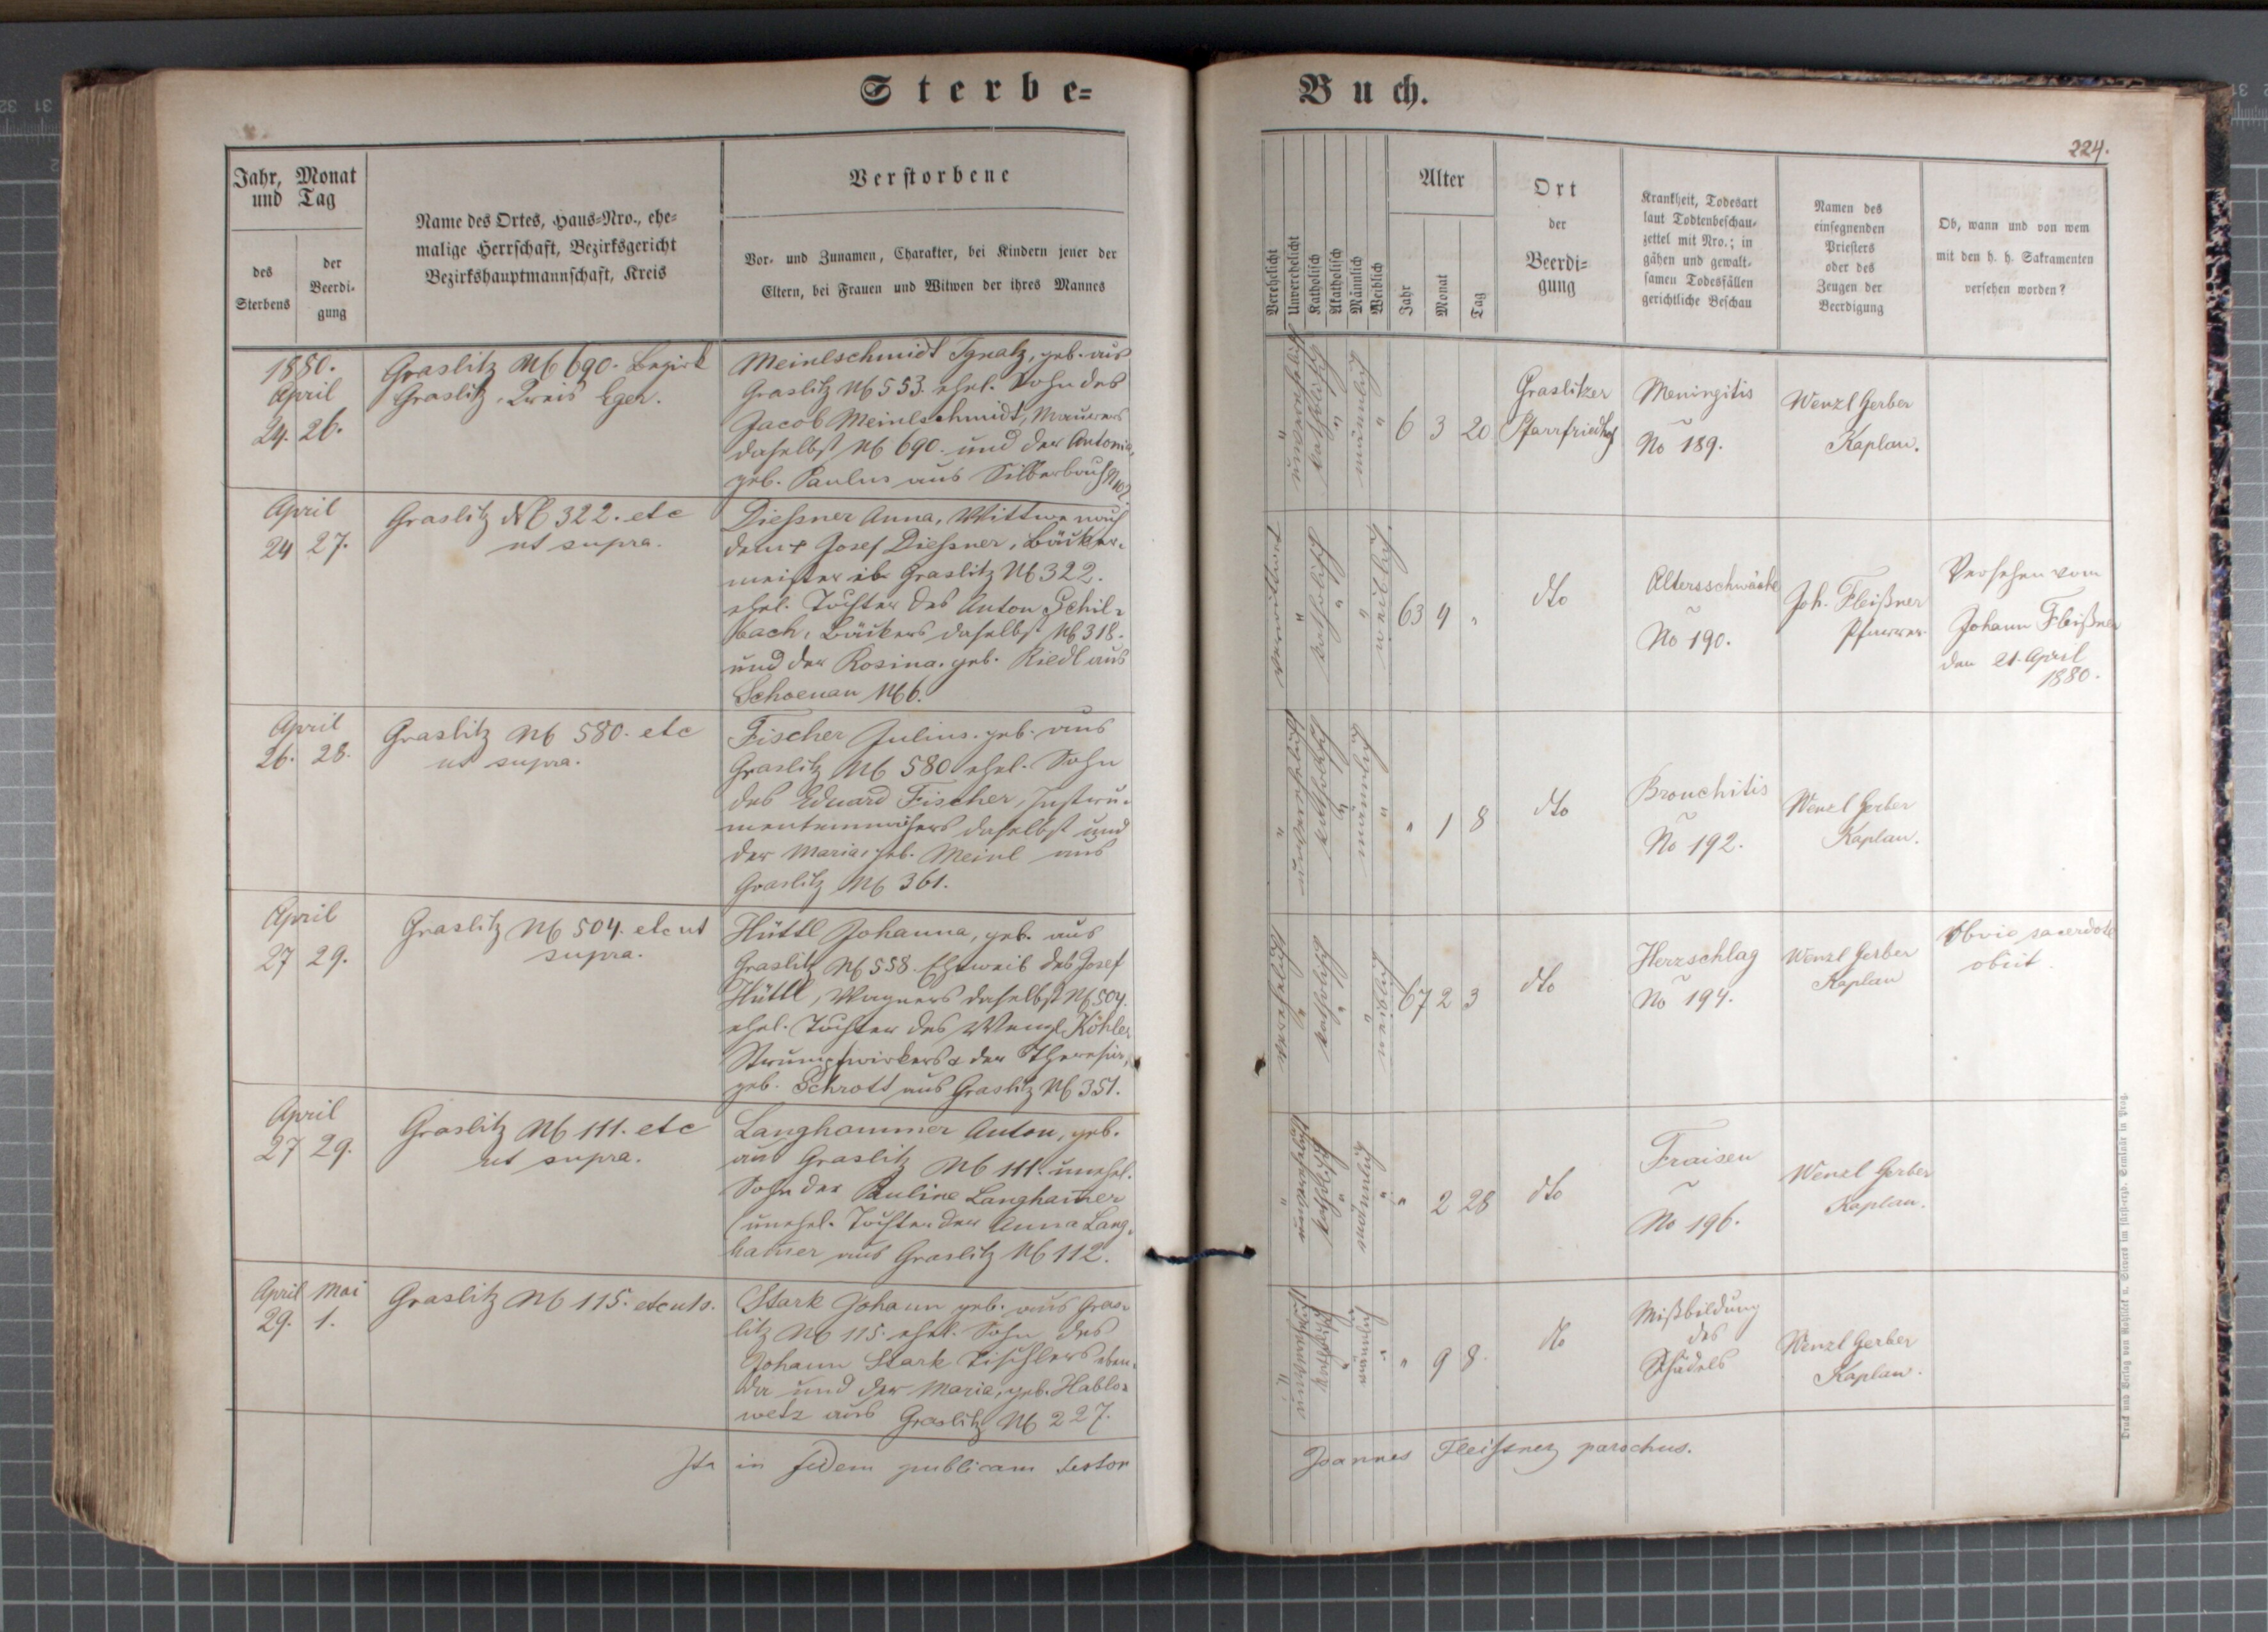 Sterbe-
Buch.
224.
Jahr, Monat
und Tag
des
Sterbens
der
Beerdi-
gung
Name des Ortes, Haus-Nro., ehe-
malige Herrschaft, Bezirksgericht
Bezirkshauptmannschaft, Kreis
Verstorbene
Vor- und Zunamen, Charakter, bei Kindern jener der
Eltern, bei Frauen und Witwen der ihres Mannes
Verehelicht
Unverehelicht
Katholisch
Akatholisch
Männlich
Weiblich
Alter
Jahr
Monat
Tag
Ort
der
Beerdi-
gung
Krankheit, Todesart
laut Todtenbeschau-
zettel mit Nro.; in
gähen und gewalt-
samen Todesfällen
gerichtliche Beschau
Namen des
einsegnenden
Priesters
oder des
Zeugen der
Beerdigung
Ob, wann und von wem
mit den h. h. Sakramenten
versehen worden?
1880.
April
24. 26.
Graslitz N 690. Bezirk
Graslitz, Kreis Eger.
Meinlschmidt Ignatz, geb. aus
Graslitz N 553. ehel. Sohn des
Jacob Meinlschmidt, Maurers
daselbst N 690. und der Antonia,
geb. Paulus aus Silberbach
" unverehelicht katholisch " männlich "
6 3 20
Graslitzer
Pfarrfriedhof
Meningitis
No 189.
Wenzl Gerber
Kaplan.
April
24 27.
Graslitz N 322. etc
ut supra.
Diessner Anna, Wittwe nach
dem + Josef Diessner, Bäcker-
meister in Graslitz N 322.
ehel. Tochter des Anton Schil-
bach, Bäckers daselbst N 318.
und der Rosina. geb. Riedl aus
Schoenau N 6.
verwittwet " katholisch " " weiblich.
63 9 "
dto
Altersschwäche
No 190.
Joh. Fleißner
Pfarrer.
Versehen vom
Johann Fleißner
den 21. April
1880.
April
26. 28.
Graslitz N 580. etc
ut supra.
Fischer Julius. geb. aus
Graslitz N 580 ehel. Sohn
des Eduard Fischer, Instru-
mentenmachers daselbst und
der Maria, geb. Meinl aus
Graslitz N 361.
" unverehelicht katholisch " männlich "
" 1 8
dto
Bronchitis
No 192.
Wenzl Gerber
Kaplan.
April
27 29.
Graslitz N 504. etc ut
supra.
Hüttl Johanna, geb. aus
Graslitz N 558. Eheweib des Josef
Hüttl, Wagners daselbst N 504.
ehel. Tochter des Wenzl Köhler
Strumpfwirkers & der Theresia,
geb. Schrott aus Graslitz N 351.
verehelicht " katholisch " " weiblich
67 2 3
dto
Herzschlag
No 194.
Wenzl Gerber
Kaplan
Obvio sacerdote
obiit.
April
27 29.
Graslitz N 111. etc
ut supra.
Langhammer Anton, geb.
aus Graslitz N 111. unehel.
Sohn der Pauline Langham̅er
unehel. Tochter der Anna Lang-
ham̅er aus Graslitz N 112.
" unverehelicht katholisch " männlich "
" 2 28
dto
Fraisen
No 196.
Wenzl Gerber
Kaplan.
April Mai
29. 1.
Graslitz N 115. etc ut s.
Stark Johann geb. aus Gras-
litz N 115. ehel. Sohn des
Johann Stark Tischlers eben-
da und der Maria, geb. Hablo-
wetz aus Graslitz N 227.
" unverehelicht katholisch " männlich "
" 9 8.
dto
Mißbildung
des
Schädels
Wenzl Gerber
Kaplan.
Ita in fidem publicam testor
Joannes Fleißner parochus.